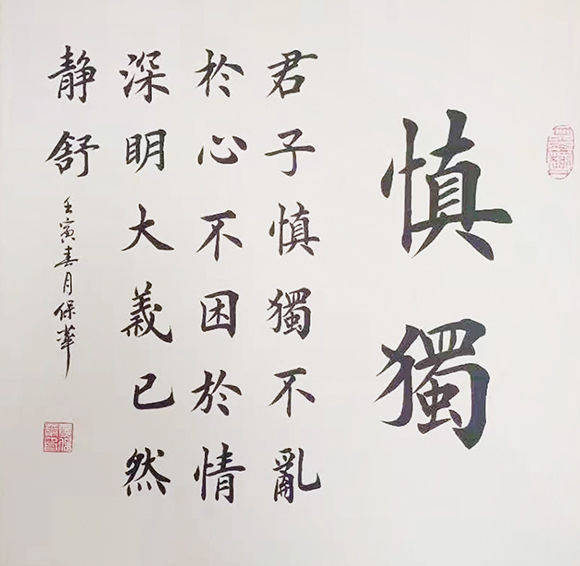 慎獨
君子慎獨不亂
於心不困於情
深明大義已然
静舒
壬寅春月保華